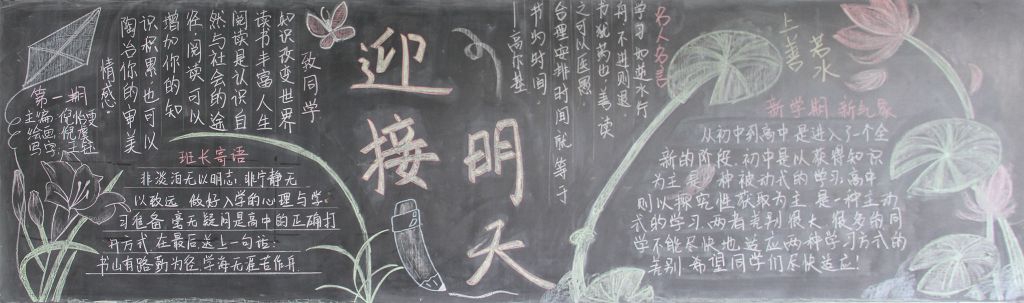 迎接
明天
致同学
知识改变世界
读书丰富人生
阅读是认识自
然与社会的途
径,阅读可以
增加你的知
识积累也可以
陶冶你的审美
情感。
第一期
班长寄语
非淡泊无以明志,非宁静无
以致远 做好入学的心理与学
习准备 毫无疑问是高中的正确打
开方式 在最后送上一句话:
书山有路勤为径 学海无涯苦作舟
名人名言
学习如逆水行
舟,不进则退
书犹药也,善读
之可以医愚。
合理安排时间就等于
节约时间。
——高尔基
上善
若水
新学期 新气象
从初中到高中是进入了个全
新的阶段.初中是以获得知识
为主是一种被动式的学习,高中
则以探究性获取为主 是一种主动
式的学习.两者差别很大.很多的同
学不能尽快地适应两种学习方式的
差别 希望同学们尽快适应!